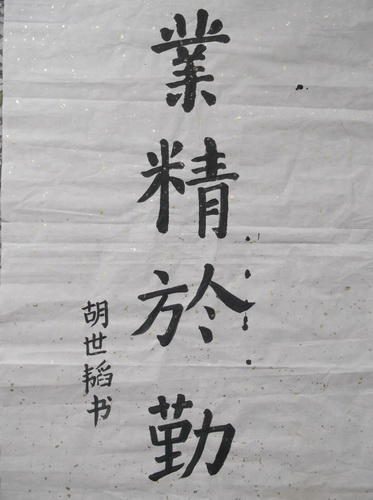 業精於勤
胡世韬书